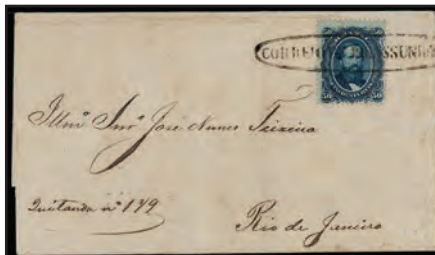 CORREIO
50 50
Illmo Snr José Nunes Teixeira
Quitanda nº 179
Rio de Janeiro